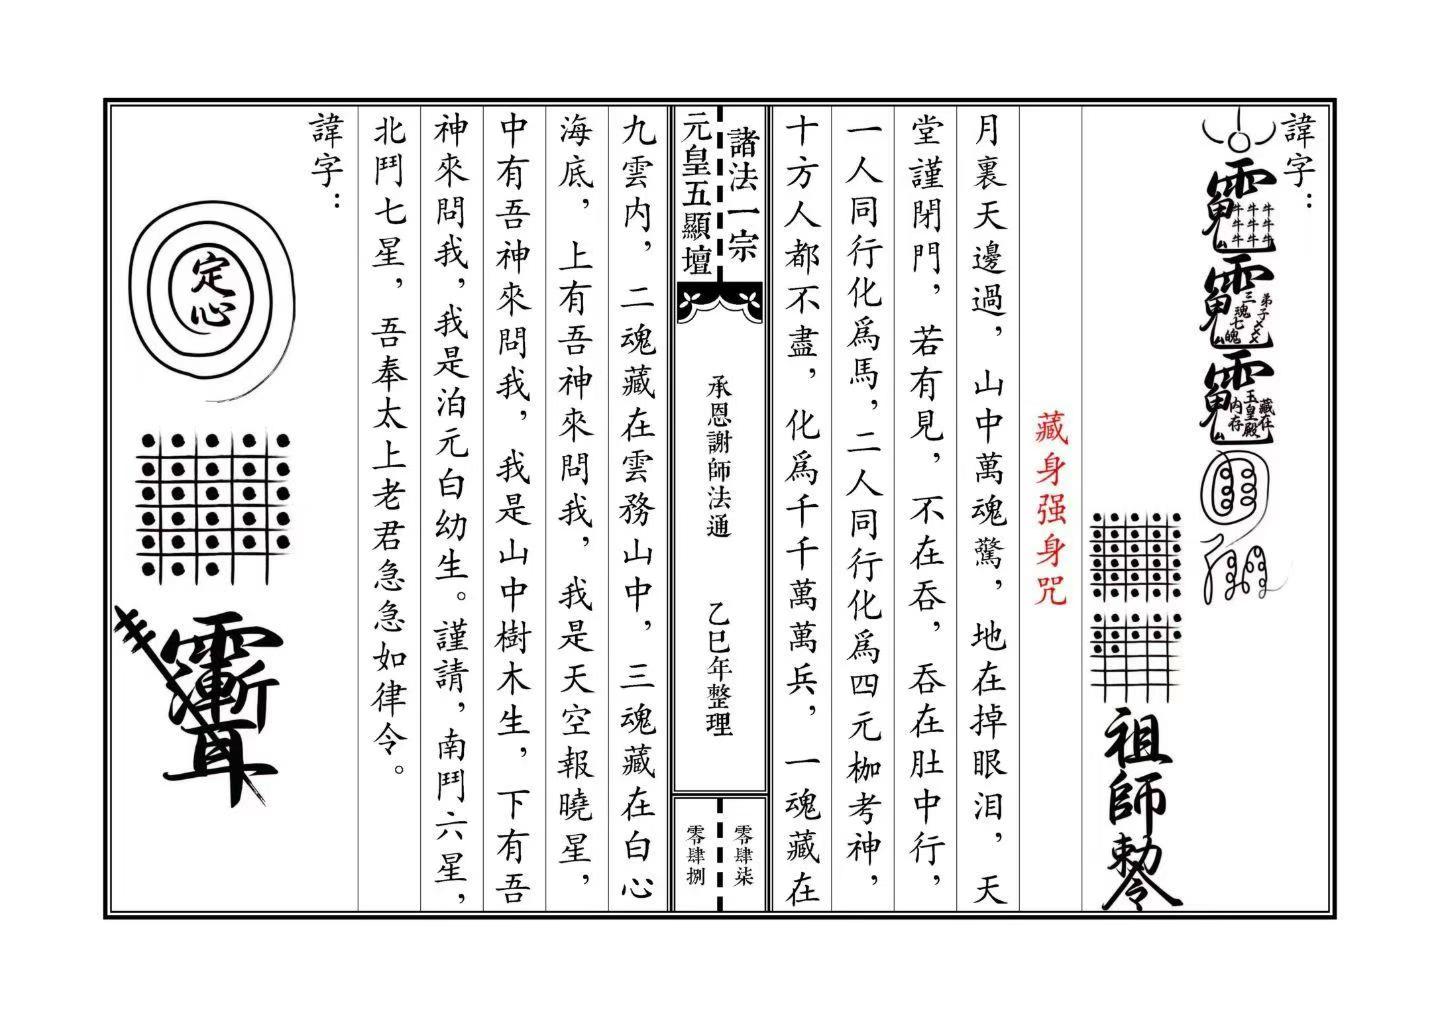 諱字：
牛牛牛
牛牛牛
牛牛牛
弟子××
三魂七魄
藏在
玉皇殿
内存
祖師勅令
藏身强身咒
月裏天邊過，山中萬魂驚，地在掉眼泪，天
堂謹閉門，若有見，不在吞，吞在肚中行，
一人同行化爲馬，二人同行化爲四元枷考神，
十方人都不盡，化爲千千萬萬兵，一魂藏在
諸法一宗
元皇五顯壇
承恩謝師法通　乙巳年整理
零肆柒
零肆捌
九雲内，二魂藏在雲務山中，三魂藏在白心
海底，上有吾神來問我，我是天空報曉星，
中有吾神來問我，我是山中樹木生，下有吾
神來問我，我是泊元白幼生。謹請，南鬥六星，
北鬥七星，吾奉太上老君急急如律令。
諱字：
定心